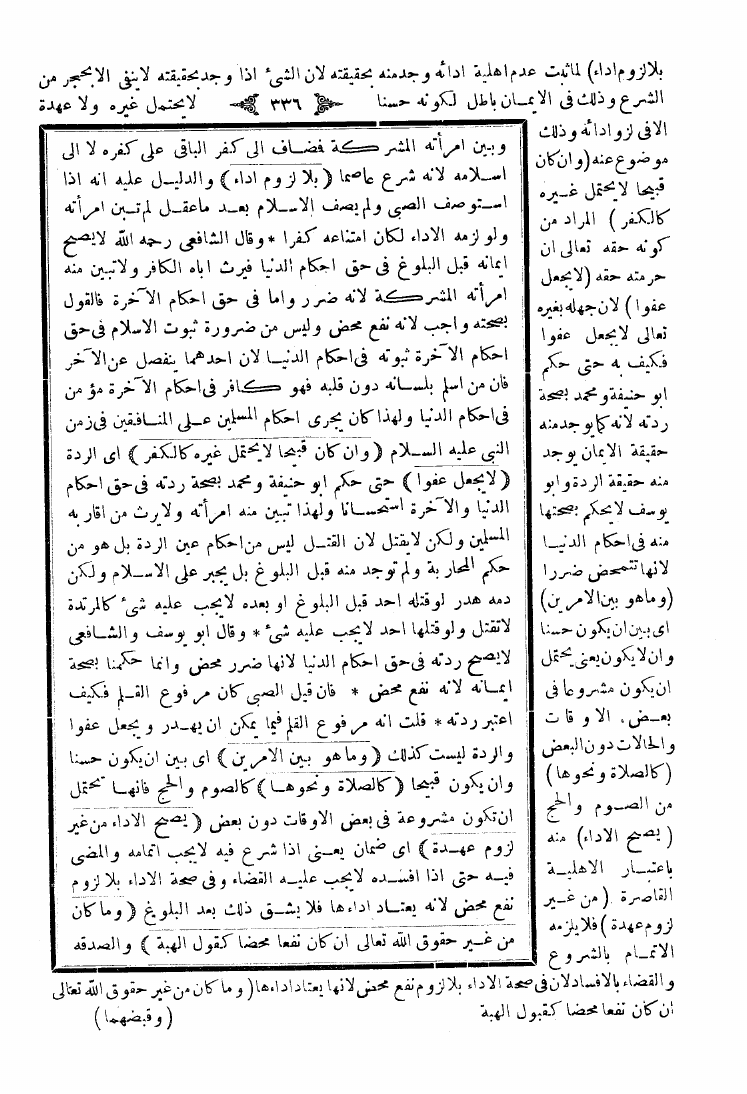 بلالزوم اداء) لماثبت عدم اهلية ادائه وجد منه بحقيقته لان الشئ اذا وجد بحقيقته لاينفى الابحجر من
الشرع وذلك فى الايمان باطل لكونه حسنا ٣٣٦ لايحتمل غيره ولا عهدة
الافى لزو ادائه وذلك
موضوع عنه (وان كان
قبيحا لايحتمل غيره
كالكفر) المراد من
كونه حقه تعالى ان
حرمته حقه (لايجعل
عفوا) لان جهله بغيره
تعالى لايجعل عفوا
فكيف به حتى حكم
ابو حنيفة ومحمد بصحة
ردته لانه كما يوجد منه
حقيقة الايمان يوجد
منه حقيقة الردة وابو
يوسف لايحكم بصحتها
منه فى احكام الدنيا
لانها تتمحض ضررا
(وماهو بين الامرين)
اى بين ان يكون حسنا
وان لايكون يعنى يحتمل
ان يكون مشروعا فى
بعض الاوقات
والحالات دون البعض
(كالصلاة ونحوها)
من الصوم والحج
(يصح الاداء) منه
باعتبار الاهلية
القاصرة (من غير
لزوم عهدة) فلا يلزمه
الاتمام بالشروع
وبين امرأته المشركة فضاف الى كفر الباقى على كفره لا الى
اسلامه لانه شرع عاصما (بلالزوم اداء) والدليل عليه انه اذا
استوصف الصبى ولم يصف الاسلام بعد ماعقل لم تبن امرأته
ولو لزمه الاداء لكان امتناعه كفرا * وقال الشافعى رحمه الله لايصح
ايمانه قبل البلوغ فى حق احكام الدنيا فيرث اباه الكافر ولاتبين منه
امرأته المشركة لانه ضرر واما فى حق احكام الآخرة فالقول
بصحته واجب لانه نفع محض وليس من ضرورة ثبوت الاسلام فى حق
احكام الآخرة ثبوته فى احكام الدنيا لان احدهما ينفصل عن الآخر
فان من اسلم بلسانه دون قلبه فهو كافر فى احكام الآخرة مؤمن
فى احكام الدنيا ولهذا كان يجرى احكام المسلمين على المنافقين فى زمن
النبى عليه السلام (وان كان قبيحا لايحتمل غيره كالكفر) اى الردة
(لايجعل عفوا) حتى حكم ابو حنيفة ومحمد بصحة ردته فى حق احكام
الدنيا والآخرة استحسانا ولهذا تبين منه امرأته ولايرث من اقاربه
المسلمين ولكن لايقتل لان القتل ليس من احكام عين الردة بل هو من
حكم المحاربة ولم توجد منه قبل البلوغ بل يجبر على الاسلام ولكن
دمه هدر لوقتله احد قبل البلوغ او بعده لايجب عليه شئ كالمرتدة
لاتقتل ولوقتلها احد لايجب عليه شئ * وقال ابو يوسف والشافعى
لايصح ردته فى حق احكام الدنيا لانها ضرر محض وانما حكمنا بصحة
ايمانه لانه نفع محض * فان قيل الصبى كان مرفوع القلم فكيف
اعتبر ردته * قلت انه مرفوع القلم فيما يمكن ان يهدر ويجعل عفوا
والردة ليست كذلك (وماهو بين الامرين) اى بين ان يكون حسنا
وان يكون قبيحا (كالصلاة ونحوها) كالصوم والحج فانها تحتمل
ان تكون مشروعة فى بعض الاوقات دون بعض (يصح الاداء من غير
لزوم عهدة) اى ضمان يعنى اذا شرع فيه لايجب اتمامه والمضى
فيه حتى اذا افسده لايجب عليه القضاء وفى صحة الاداء بلالزوم
نفع محض لانه يعتاد اداءها فلا يشق ذلك بعد البلوغ (وما كان
من غير حقوق الله تعالى ان كان نفعا محضا كقبول الهبة) والصدقه
والقضاء بالافساد لان فى صحة الاداء بلالزوم نفع محض لانها يعتاد اداءها (وما كان من غير حقوق الله تعالى
ان كان نفعا محضا كقبول الهبة (وقبضهما)